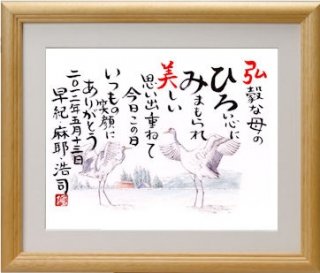 弘毅な母の
ひろい心に
みまもられ
美しい
思い出重ねて
今日この日
いつもの笑顔に
ありがとう
二〇一二年五月十三日
早紀・麻耶・浩司